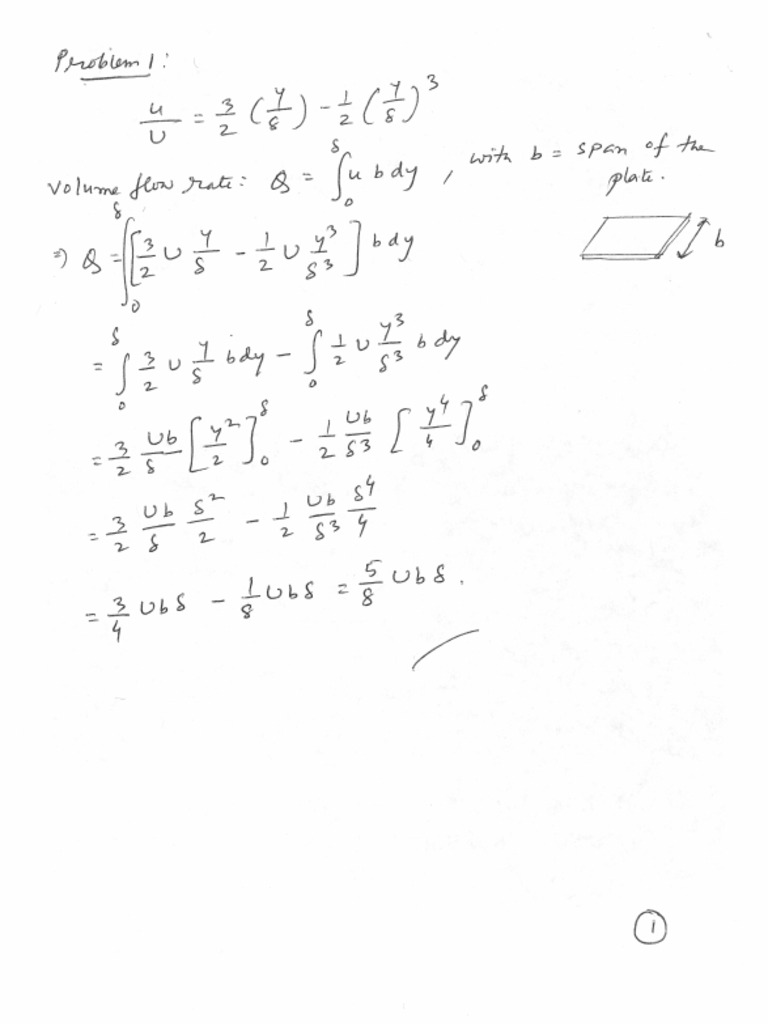 Problem 1:
u/U = 3/2 (y/δ) - 1/2 (y/δ)^3
volume flow rate: Q = ∫_0^δ u b dy , with b = span of the plate.
⇒ Q = ∫_0^δ [3/2 U y/δ - 1/2 U y^3/δ^3] b dy
b
= ∫_0^δ 3/2 U y/δ b dy - ∫_0^δ 1/2 U y^3/δ^3 b dy
= 3/2 Ub/δ [y^2/2]_0^δ - 1/2 Ub/δ^3 [y^4/4]_0^δ
= 3/2 Ub/δ δ^2/2 - 1/2 Ub/δ^3 δ^4/4
= 3/4 Ubδ - 1/8 Ubδ = 5/8 Ubδ.
1